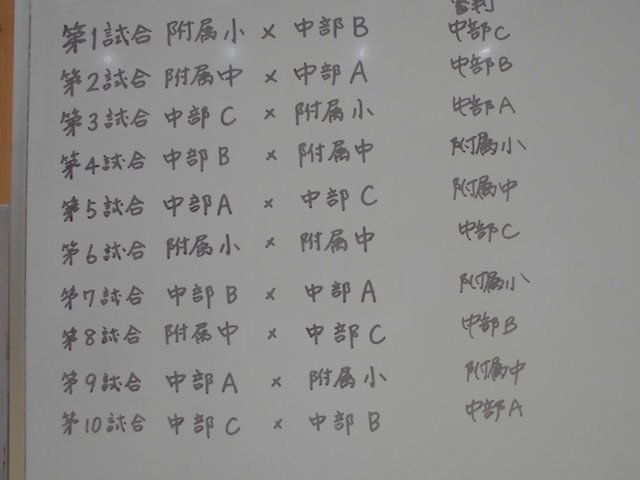 審判
第1試合 附属小 × 中部B 中部C
第2試合 附属中 × 中部A 中部B
第3試合 中部C × 附属小 中部A
第4試合 中部B × 附属中 附属小
第5試合 中部A × 中部C 附属中
第6試合 附属小 × 附属中 中部C
第7試合 中部B × 中部A 附属小
第8試合 附属中 × 中部C 中部B
第9試合 中部A × 附属小 附属中
第10試合 中部C × 中部B 中部A